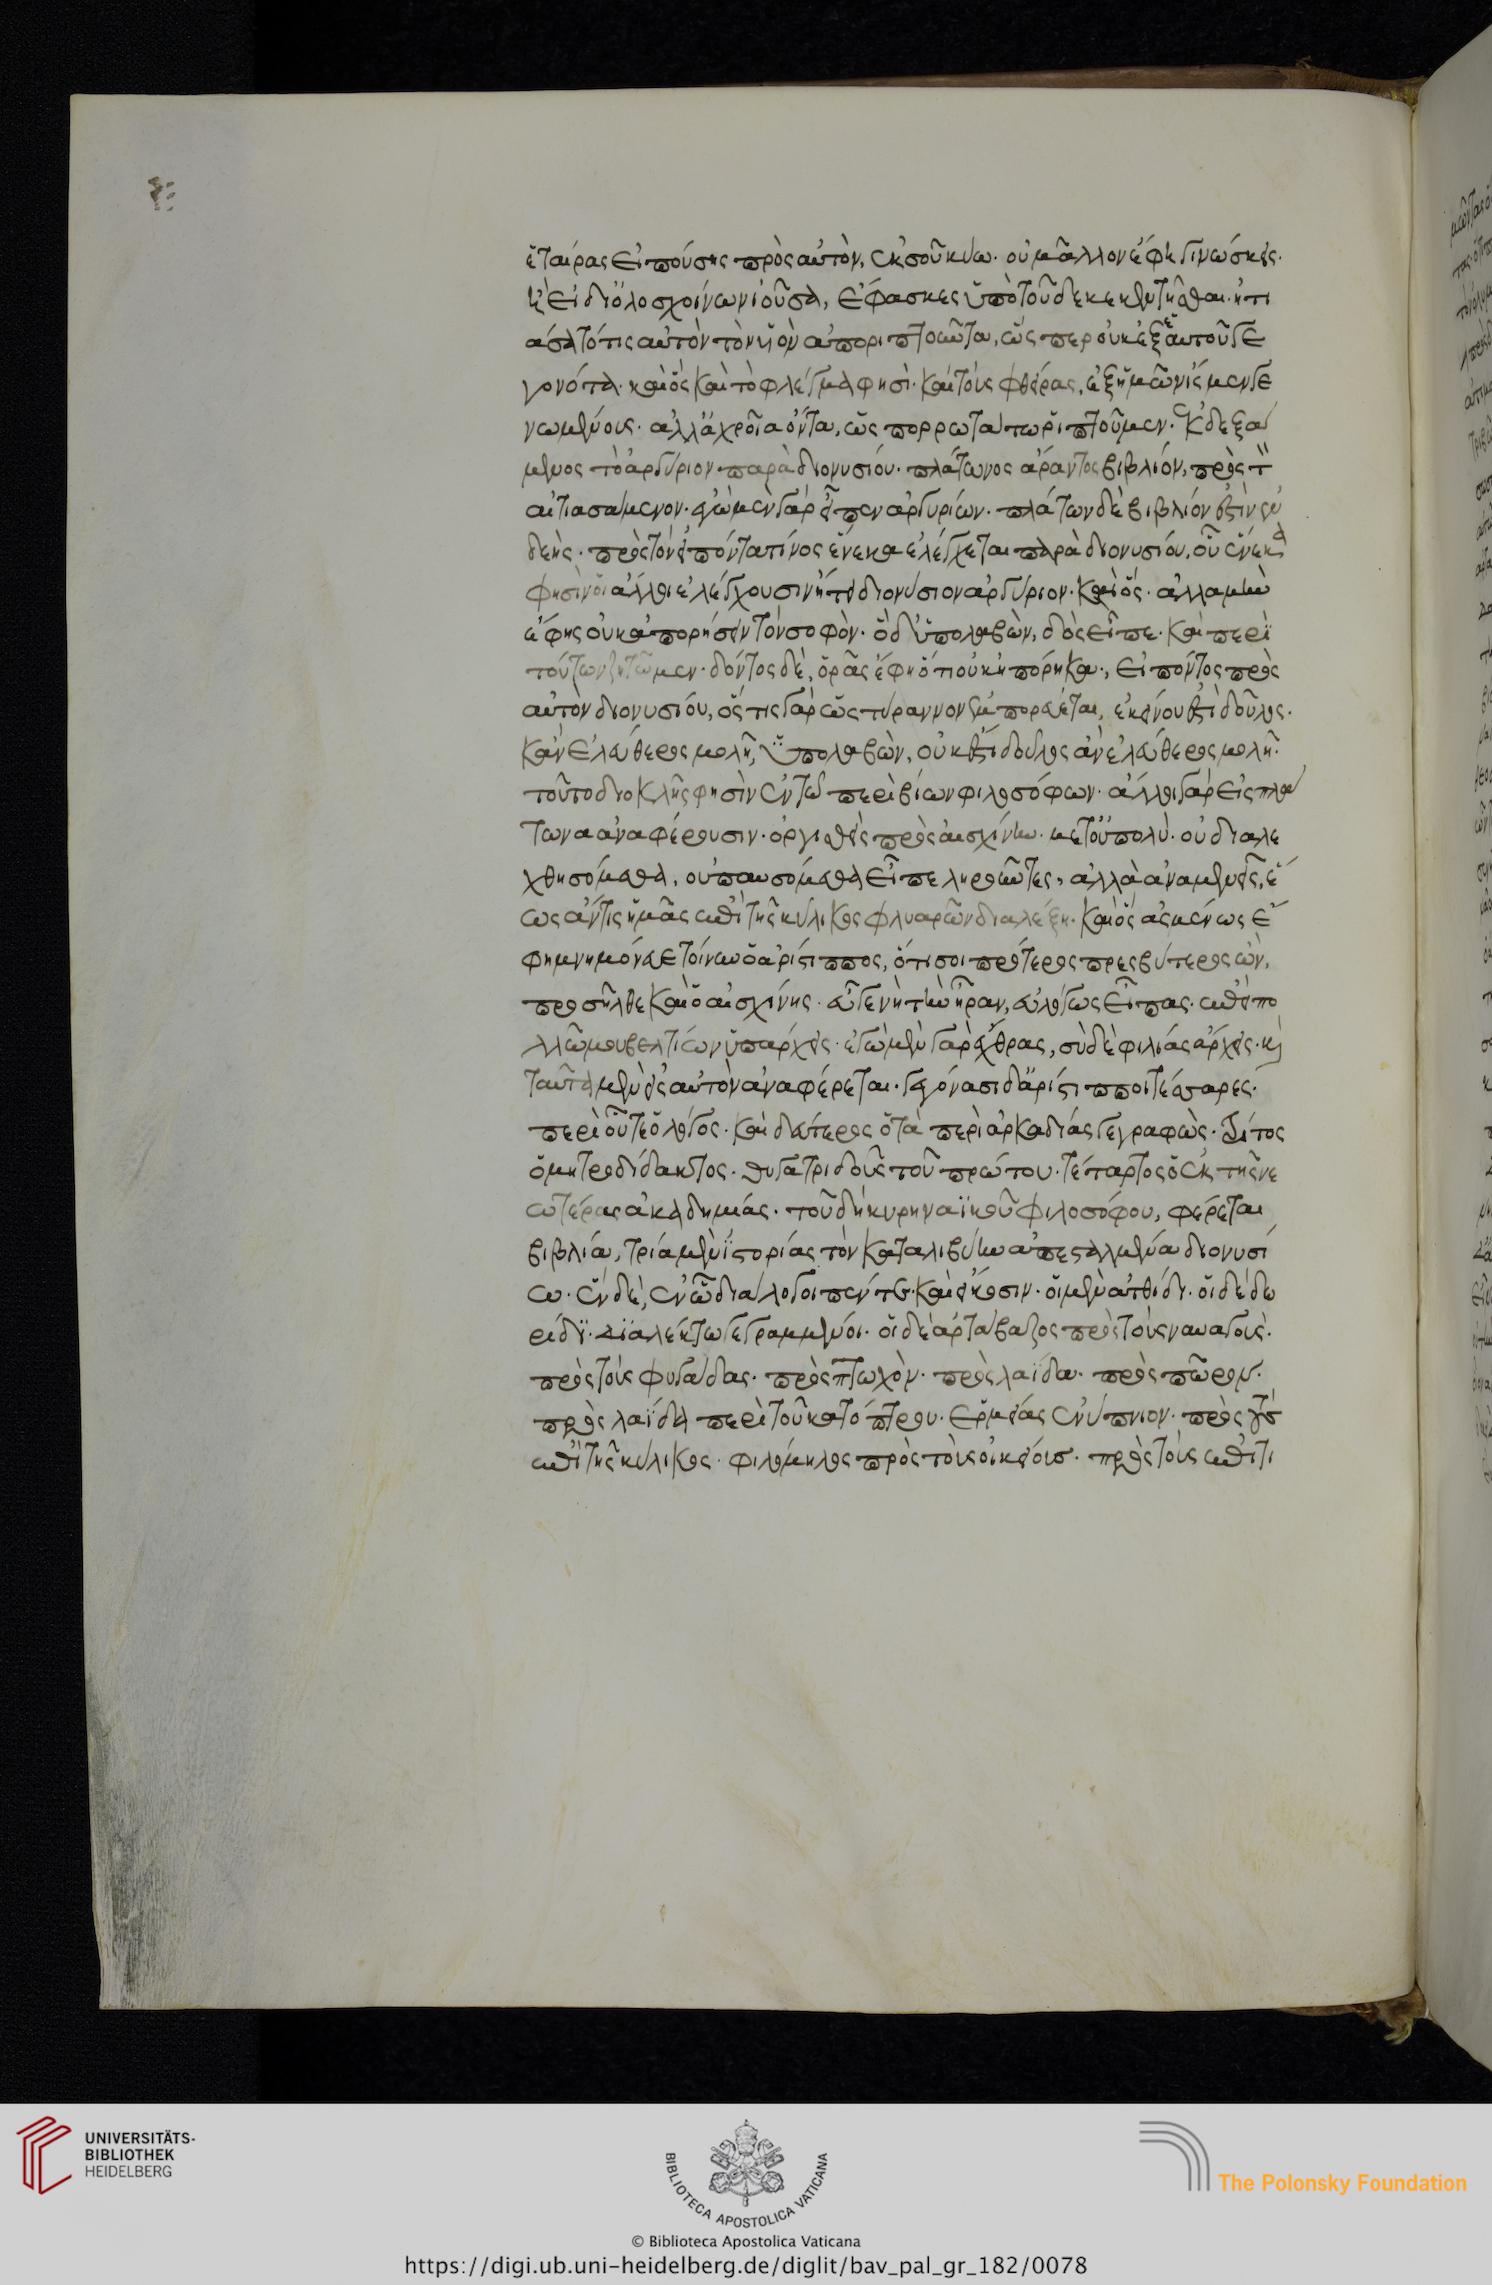 ἑταίρας εἰπούσης πρὸς αὐτὸν, ἐκ σοῦ κύω. οὐ μᾶλλον ἔφη γινώσκεις.
ἢ εἰ δι' ὅλο σχοίνων ἰοῦσα, ἔφασκες ὑπὸ τοῦδε κεκεντῆσθαι. ἠτι
άσατό τις αὐτὸν τὸν υἱὸν ἀπορριπτοῦντα, ὥσπερ οὐκ ἐξ ἑαυτοῦ γε
γονότα. καὶ ὃς καὶ τὸ φλέγμα φησὶ. καὶ τοὺς φθεῖρας, ἐξ ἡμῶν ἴσμεν γε
νωμένους. ἀλλ' ἀχρεῖα ὄντα, ὡς πορρωτάτω ῥιπτοῦμεν. ἐκδεξά
μενος τὸ ἀργύριον παρὰ διονυσίου. πλάτωνος ἄραντος βιβλίον, πρὸς τὸν
αἰτιασάμενον. ἐγὼ μὲν γὰρ εἶπεν ἀργυρίων. πλάτων δὲ βιβλίων ἐστὶν ἐν
δεής. πρὸς τὸν εἰπόντα τίνος ἕνεκα ἐλέγχεται παρὰ διονυσίου, οὗ ἕνεκα
φησὶν οἱ ἄλλοι ἐλέγχουσιν ᾔτει διονύσιον ἀργύριον. καὶ ὃς. ἀλλὰ μὴν
ἔφης οὐκ ἀπορήσειν τὸν σοφὸν. ὁ δ' ὑπολαβὼν, δὸς εἶπε. καὶ περὶ
τούτων ζητῶμεν. δόντος δὲ, ὁρᾶς ἔφη ὅτι οὐκ ἠπόρηκα, εἰπόντος πρὸς
αὐτὸν διονυσίου, ὅς τις γὰρ ὡς τύραννον ἐμπορεύεται, ἐκείνου ἐστὶ δοῦλος.
κἂν ἐλεύθερος μολῇ, ὑπολαβὼν, οὐκ ἔστι δοῦλος ἂν ἐλεύθερος μολῇ.
τοῦτο διοκλῆς φησὶν ἐν τῷ περὶ βίων φιλοσόφων. ἄλλοι γὰρ εἰς πλά
τωνα ἀναφέρουσιν. ὀργισθεὶς πρὸς αἰσχίνην. μετ' οὐ πολὺ. οὐ διαλε
χθησόμεθα, οὐ παυσόμεθα εἶπε ληροῦντες, ἀλλὰ ἀναμένεις, ἕ
ως ἄν τις ἡμᾶς ἐπὶ τῆς κύλικος φλυαρῶν διαλέξῃ. καὶ ὃς ἀσμένως ἔ
φη μνημόνευε τοίνυν ὁ ἀρίστιππος, ὅτι σοι πρότερος πρεσβύτερος ὢν,
προσῆλθε καὶ ὁ αἰσχίνης. εὖ γε νὴ τὴν ἥραν, εὐλόγως εἶπας. ἐπεὶ πο
λλῷ μου βελτίων ὑπάρχεις. ἐγὼ μὲν γὰρ ἔχθρας, σὺ δὲ φιλίας ἄρχεις. καὶ
ταῦτα μὲν εἰς αὐτὸν ἀναφέρεται. γεγόνασι δ' ἀρίστιπποι τέσσαρες.
περὶ οὗ τε ὁ λόγος. καὶ δεύτερος ὁ τὰ περὶ ἀρκαδίας γεγραφὼς. τρίτος
ὁ μητροδίδακτος. θυγατριδοῦς τοῦ πρώτου. τέταρτος ὁ ἐκ τῆς νε
ωτέρας ἀκαδημίας. τοῦ δὴ κυρηναϊκοῦ φιλοσόφου, φέρεται
βιβλία, τρία μὲν ἱστορίας τῶν κατὰ λιβύην ἀπεσταλμένα διονυσί
ω. ἓν δὲ, ἐν ᾧ διάλογοι πέντε καὶ εἴκοσιν. οἱ μὲν ἀτθίδι. οἱ δὲ δω
ρίδι. διαλέκτω γεγραμμένοι. οἱ δὲ ἀρτάβαζος πρὸς τοὺς ναυαγοὺς.
πρὸς τοὺς φυγάδας. πρὸς πτωχὸν. πρὸς λαΐδα. πρὸς πῶρον.
πρὸς λαΐδα περὶ τοῦ κατόπτρου. ἑρμείας ἐνύπνιον. πρὸς τὸν
ἐπὶ τῆς κύλικος. φιλόμηλος πρὸς τοὺς οἰκείους. πρὸς τοὺς ἐπιτι
UNIVERSITÄTS-
BIBLIOTHEK
HEIDELBERG
BIBLIOTECA APOSTOLICA VATICANA
The Polonsky Foundation
© Biblioteca Apostolica Vaticana
https://digi.ub.uni-heidelberg.de/diglit/bav_pal_gr_182/0078